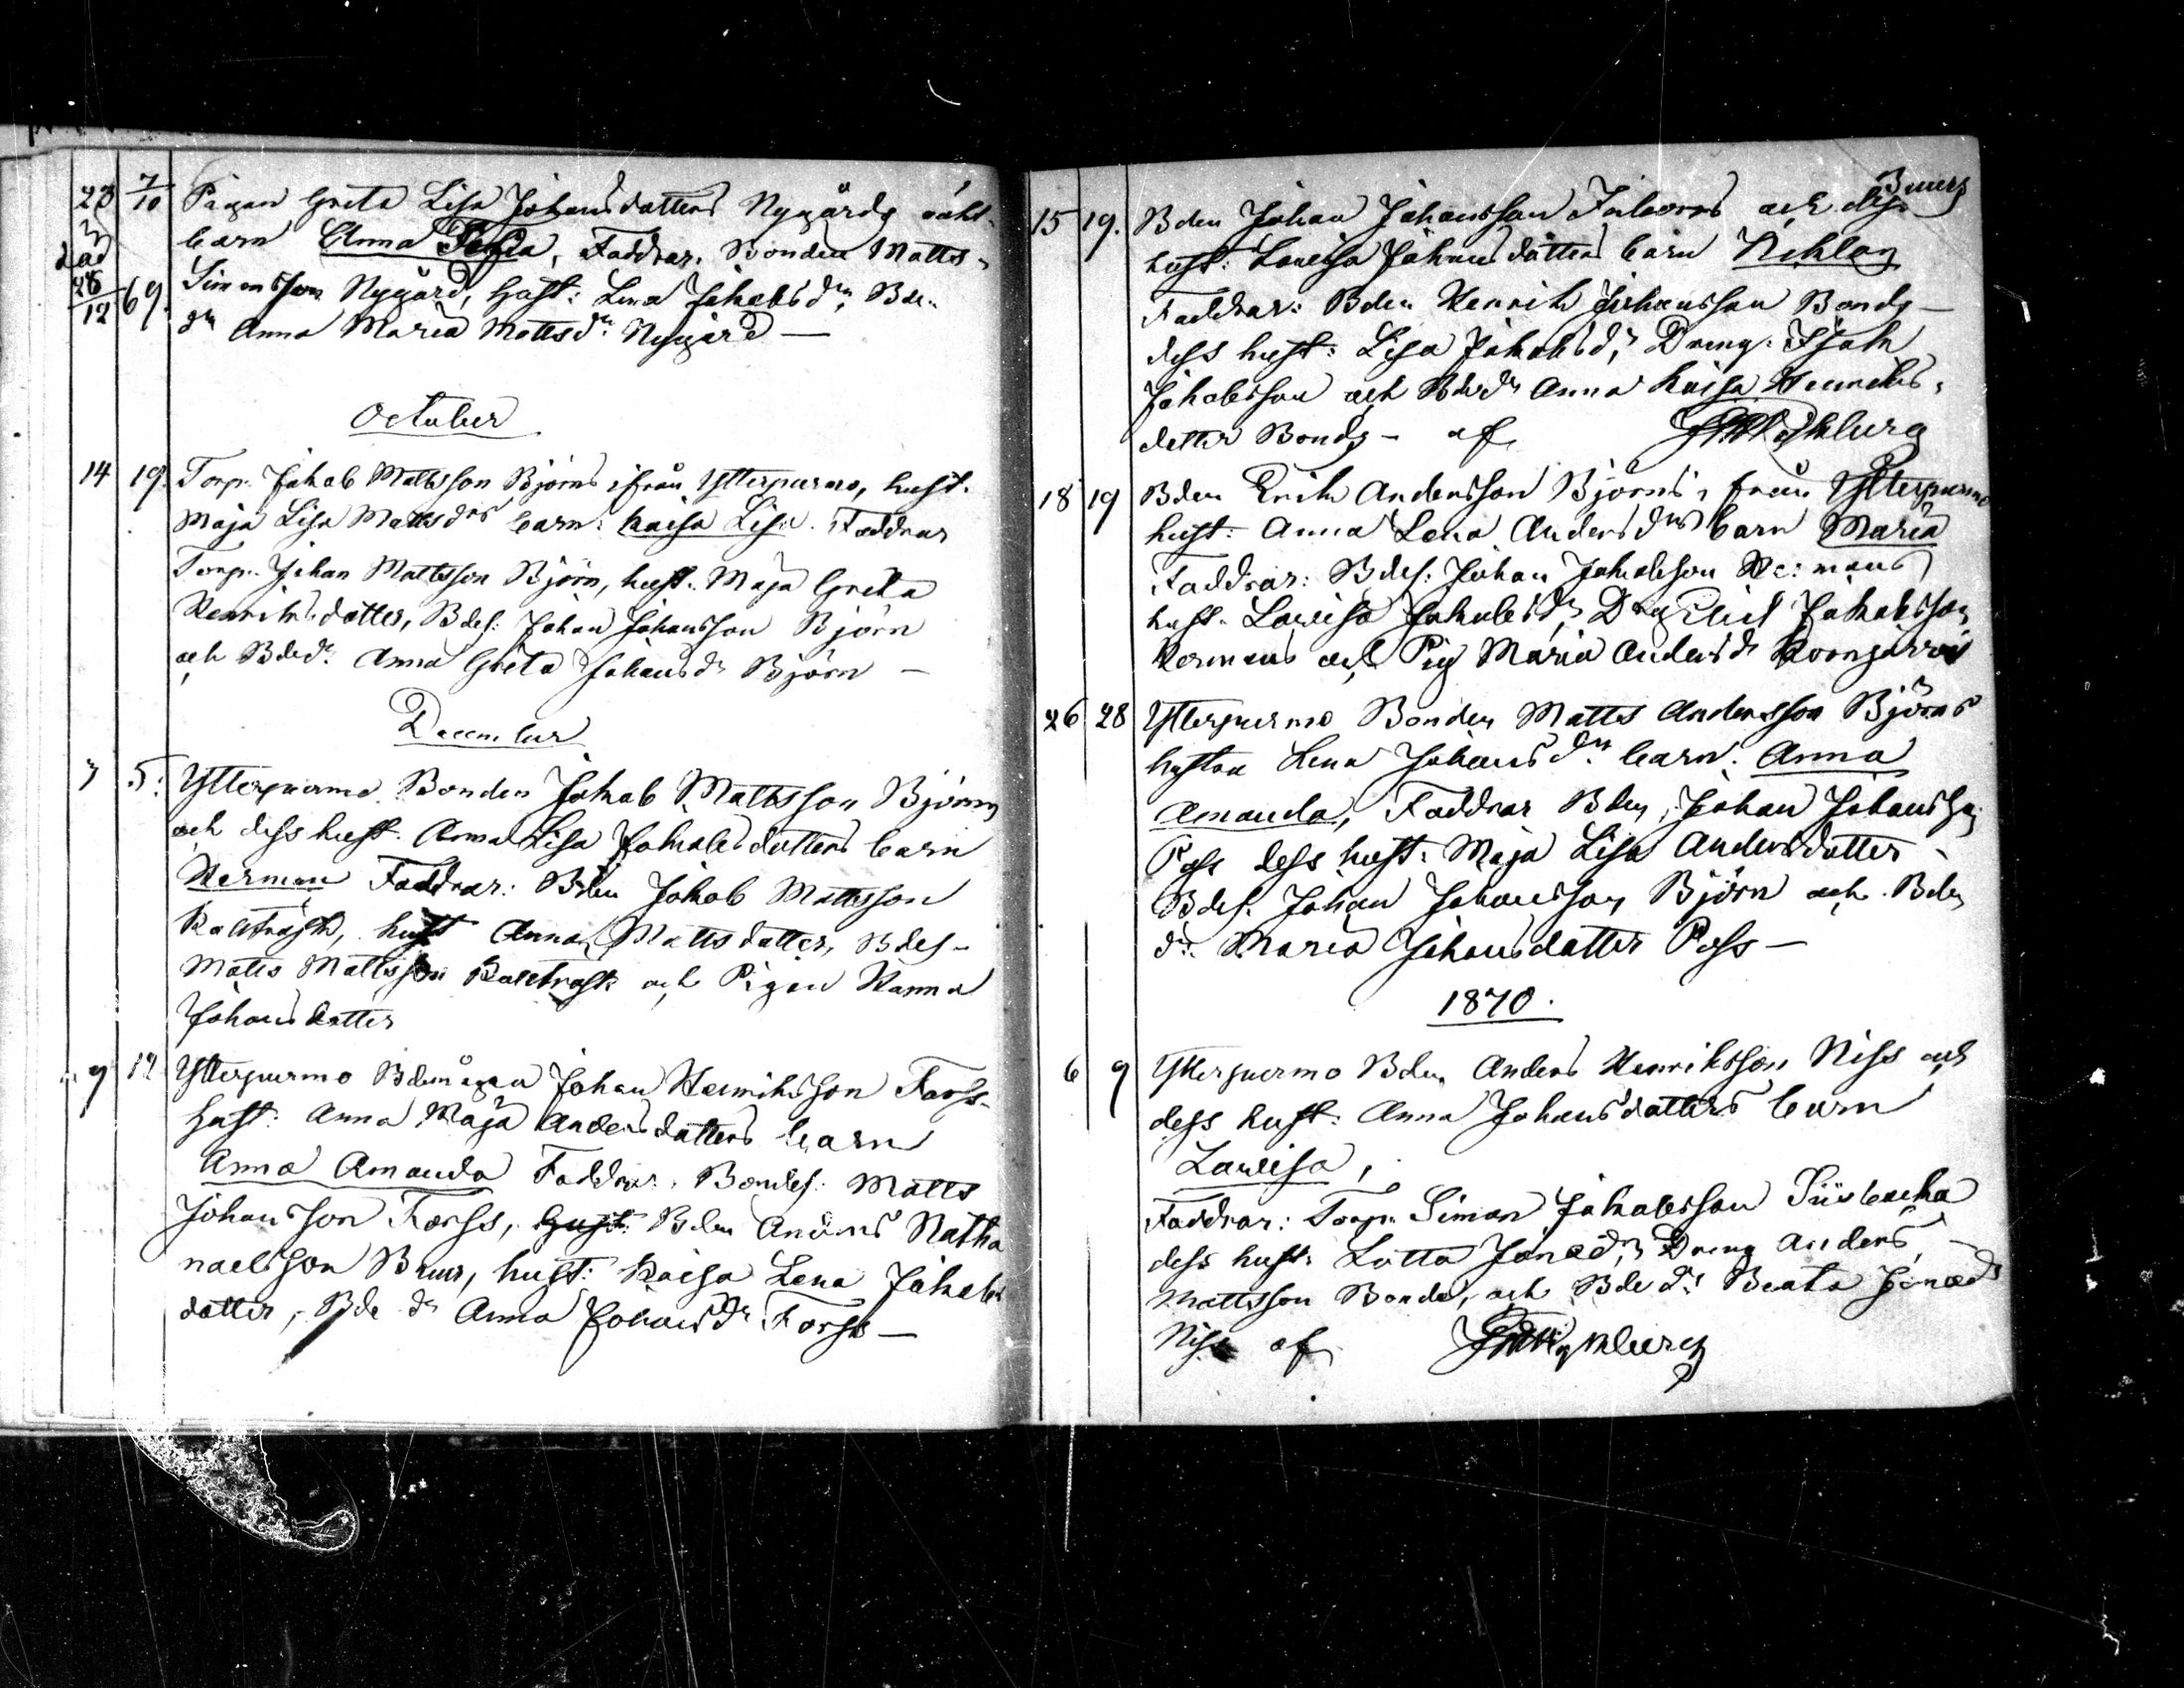 23 7/10 Pigan Greta Lisa Johansdotters Nygårds oäkt-
barn Anna Sofia, Faddrar: Bonden Matts
dö 28/12 69. Simonsson Nygård, Hust: Lena Jakobsdr, Bde-
dr Anna Maria Mattsdr Nygård —
October
14 19. Torp. Jakob Mattsson Björns ifrån Ytterpurmo, hust.
Maja Lisa Mattsdrs barn: Kaisa Lisa. Faddrar
Torp. Johan Mattsson Björn, hust. Maja Greta
Henriksdotter, Bdes: Johan Johansson Björn
och Bdedr. Anna Greta Johansdr Björn —
December
3 5. Ytterpurmo Bonden Jakob Mattsson Björns
och dess hust. Anna Lisa Jakobsdotters barn
Herman Faddrar: Bden Jakob Mattsson
Kalträsk, hust Anna Mattsdotter, Bdes-
Matts Mattsson Kalträsk och Pigan Hanna
Johansdotter
9 12 Ytterpurmo Bdemågen Johan Henriksson Forss-
Hust: Anna Maja Andersdotters barn
Anna Amanda Faddrar: Bondes: Matts
Johansson Forss, Hust: Bden Anders Natha
naelsson Bruus, hust: Kaisa Lena Jakobs
dotter, Bde dr Anna Johansdr Forss —
Bruus
15 19. Bden Johan Johansson och dess
hust: Lovisa Johansdotters barn Niklas
Faddrar: Bden Henrik Johansson Bonds —
dess hust: Lisa Jakobsdr, Dreng. Isak
Jakobsson och Bdedr Anna Kaisa Henriks-
dotter Bonds — af
18 19 Bden Erik Andersson Björns, från Ytterpurmo
hust: Anna Lena Andersdrs barn Maria
Faddrar: Bdes: Johan Jakobsson Hermans
hust. Lovisa Jakobsdr, Drg Elias Jakobsson
Hermans och Pig Maria Andersdr Korngärd
26 28 Ytterpurmo Bonden Matts Andersson Björns
hustru Lena Johansdrs barn: Anna
Amanda, Faddrar Bden, Johan Johansson
Poss dess hust: Maja Lisa Andersdotter —
Bdes. Johan Johansson Björn och Bde
dr. Maria Johansdotter Poss —
1870.
6 9 Ytterpurmo Bden Anders Henriksson Niss och
dess hust: Anna Johansdotters barn
Lovisa,
Faddrar: Torp. Simon Jakobsson Siisbacka
dess hust: Lotta Jonædr, Dreng Anders
Mattsson Bonds, och Bde dr Beata Jonædr
Niss af